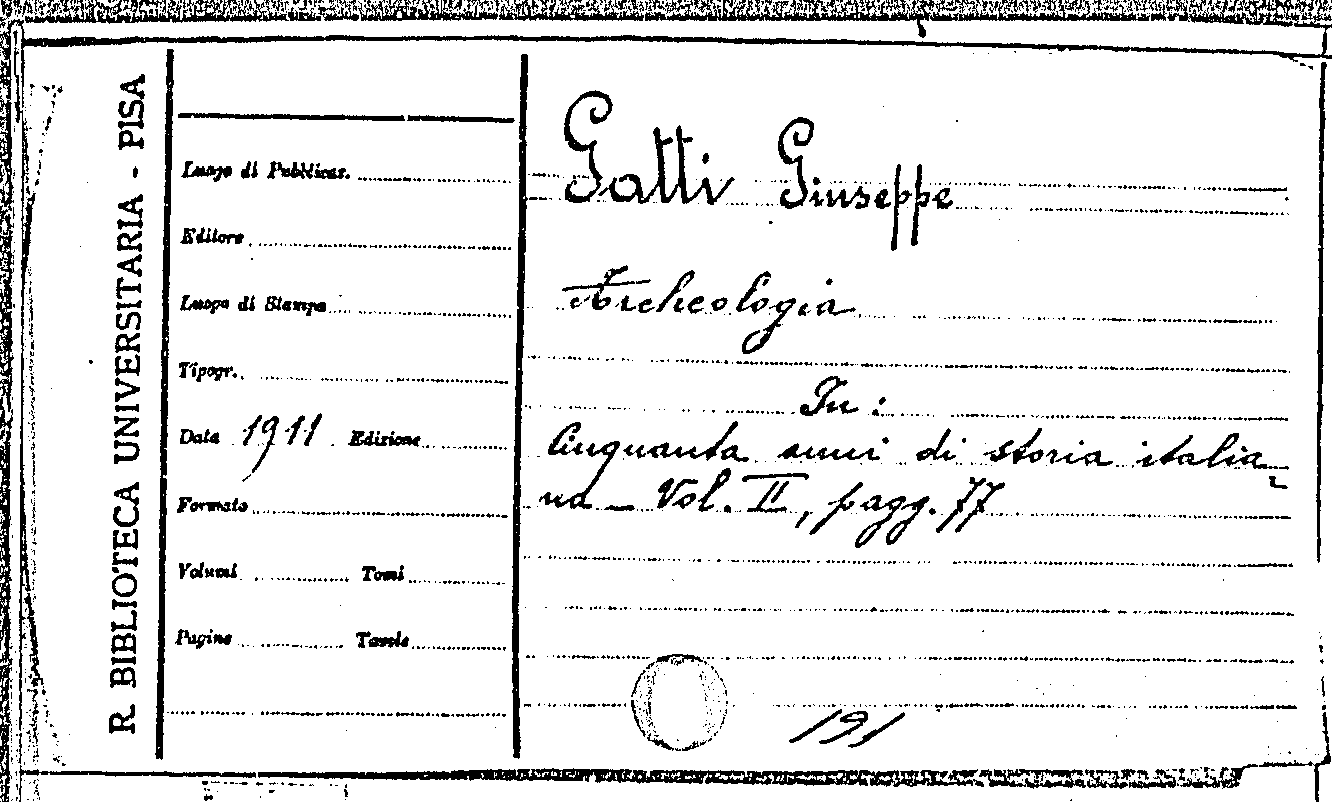 R. BIBLIOTECA UNIVERSITARIA - PISA
Luogo di Pubblicaz.
Editore
Luogo di Stampa
Tipogr.
Data 1911 Edizione
Formato
Volumi Tomi
Pagine Tavole
Gatti Giuseppe
Archeologia
In:
Cinquanta anni di storia italia-
na - Vol. II, pagg. 77
191